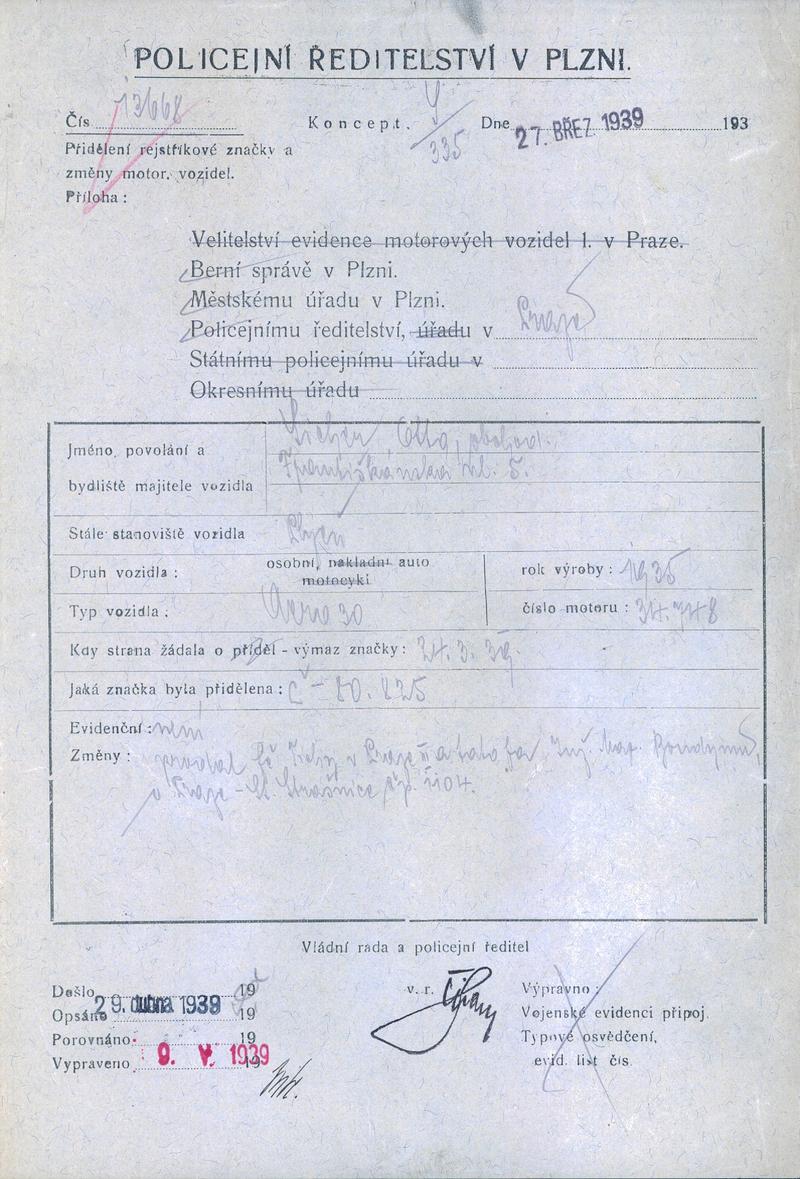 POLICEJNÍ ŘEDITELSTVÍ V PLZNI.
Čís. 13668
Koncept.
335
Dne 27. BŘEZ. 1939 193
Přidělení rejstříkové značky a
změny motor. vozidel.
Příloha :
Velitelství evidence motorových vozidel I. v Praze.
Berní správě v Plzni.
Městskému úřadu v Plzni.
Policejnímu ředitelství, úřadu v Praze
Státnímu policejnímu úřadu v
Okresnímu úřadu
Jméno, povolání a
bydliště majitele vozidla
Otto, obchod.
Františkánská ul. 5.
Stálé stanoviště vozidla Plzeň
Druh vozidla :
osobní, nákladní auto
motocykl
rok výroby : 1935
Typ vozidla : Aero 30
číslo motoru : 34.748
Kdy strana žádala o příděl - výmaz značky : 24. 3. 39.
Jaká značka byla přidělena : Č - 80.825
Evidenční : není
Změny : prodal v Praze II a tato fa Ing. Max.
v Praze - St. Strašnice čp. 1104.
Vládní rada a policejní ředitel
Došlo 19
Opsáno 29. dubna 1939 19
Porovnáno 19
Vypraveno 9. V. 1939 19
v. r.
Výpravno :
Vojenské evidenci připoj.
Typové osvědčení,
evid. list čís.